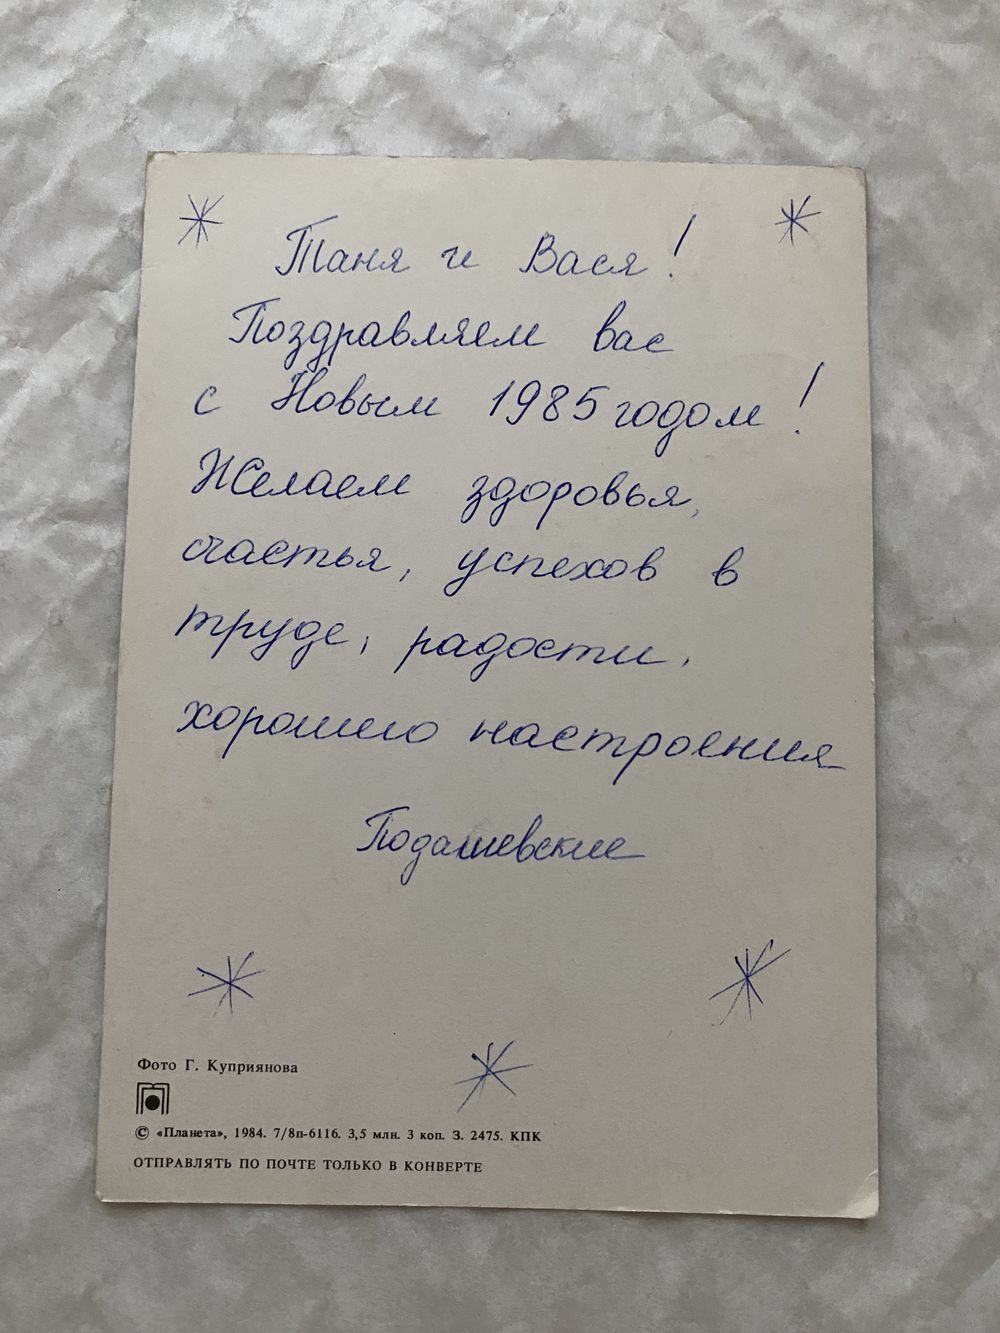 Таня и Вася!
Поздравляем вас
с Новым 1985 годом!
Желаем здоровья,
счастья, успехов в
труде, радости,
хорошего настроения
Подашевские
Фото Г. Куприянова
© «Планета», 1984. 7/8п-6116. 3,5 млн. 3 коп. З. 2475. КПК
ОТПРАВЛЯТЬ ПО ПОЧТЕ ТОЛЬКО В КОНВЕРТЕ